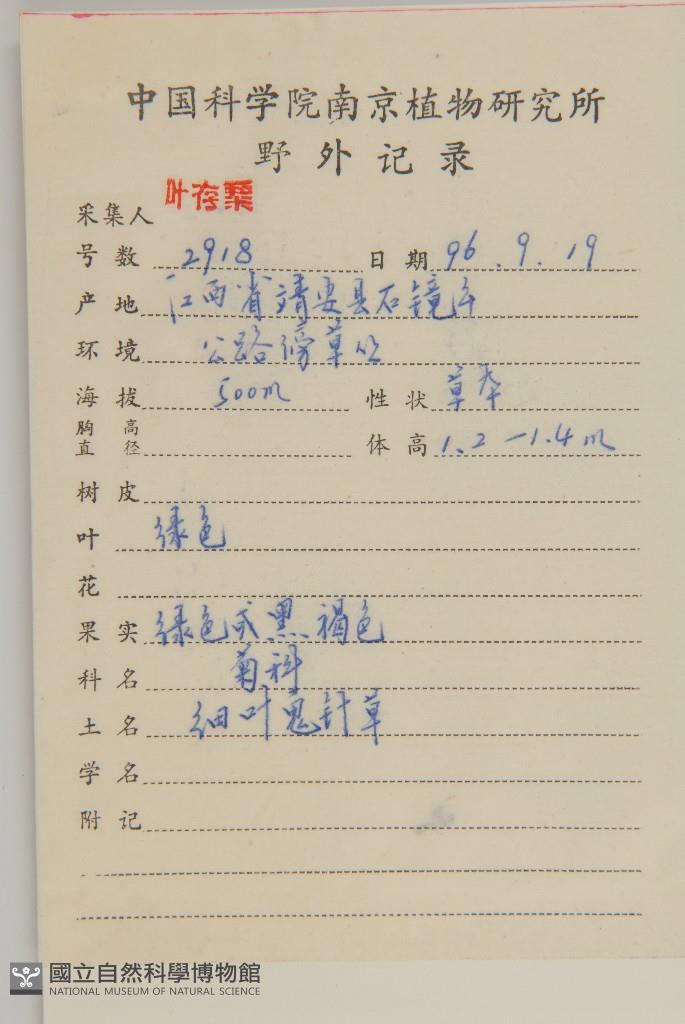 中国科学院南京植物研究所
野外记录
采集人 叶存粟
号数 2918 日期 96.9.19
产地 江西省靖安县石镜
环境 公路傍草丛
海拔 500m 性状 草本
胸高直径 体高 1.2-1.4m
树皮
叶 绿色
花
果实 绿色或黑褐色
科名 菊科
土名 细叶鬼针草
学名
附记
國立自然科學博物館
NATIONAL MUSEUM OF NATURAL SCIENCE